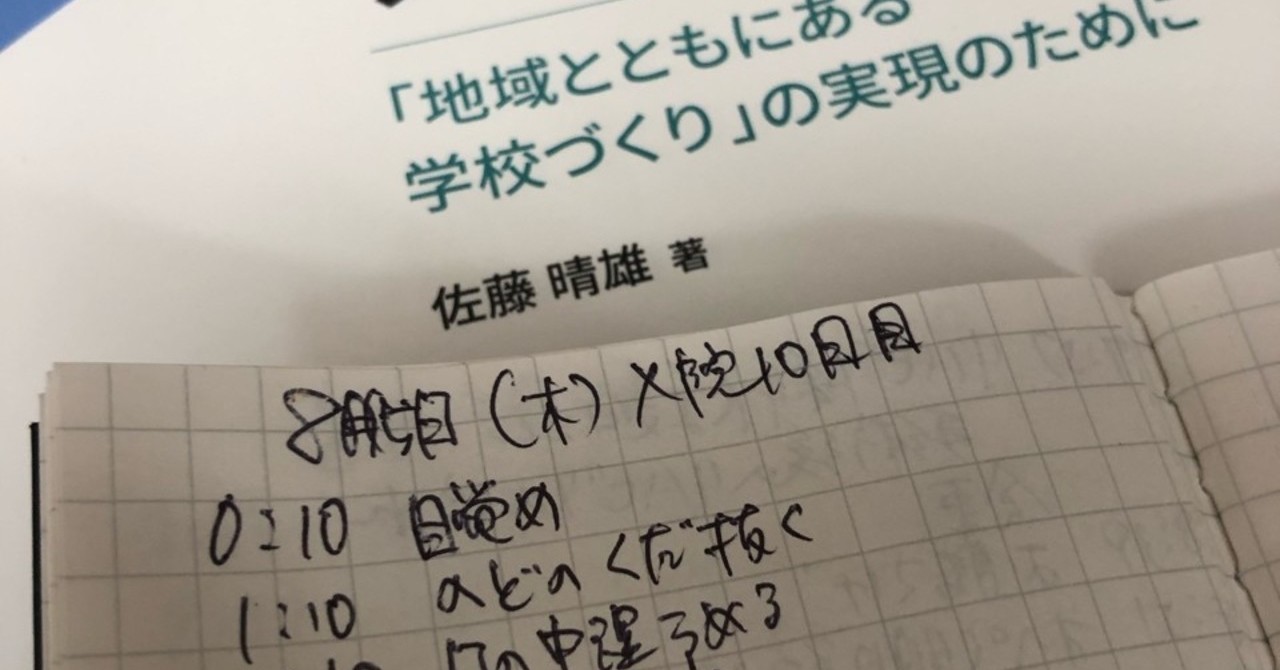 「地域とともにある
学校づくり」の実現のために
佐藤 晴雄 著
(木) 入院10日目
0:10 目覚め
1:10 のどのくだ抜く
の中